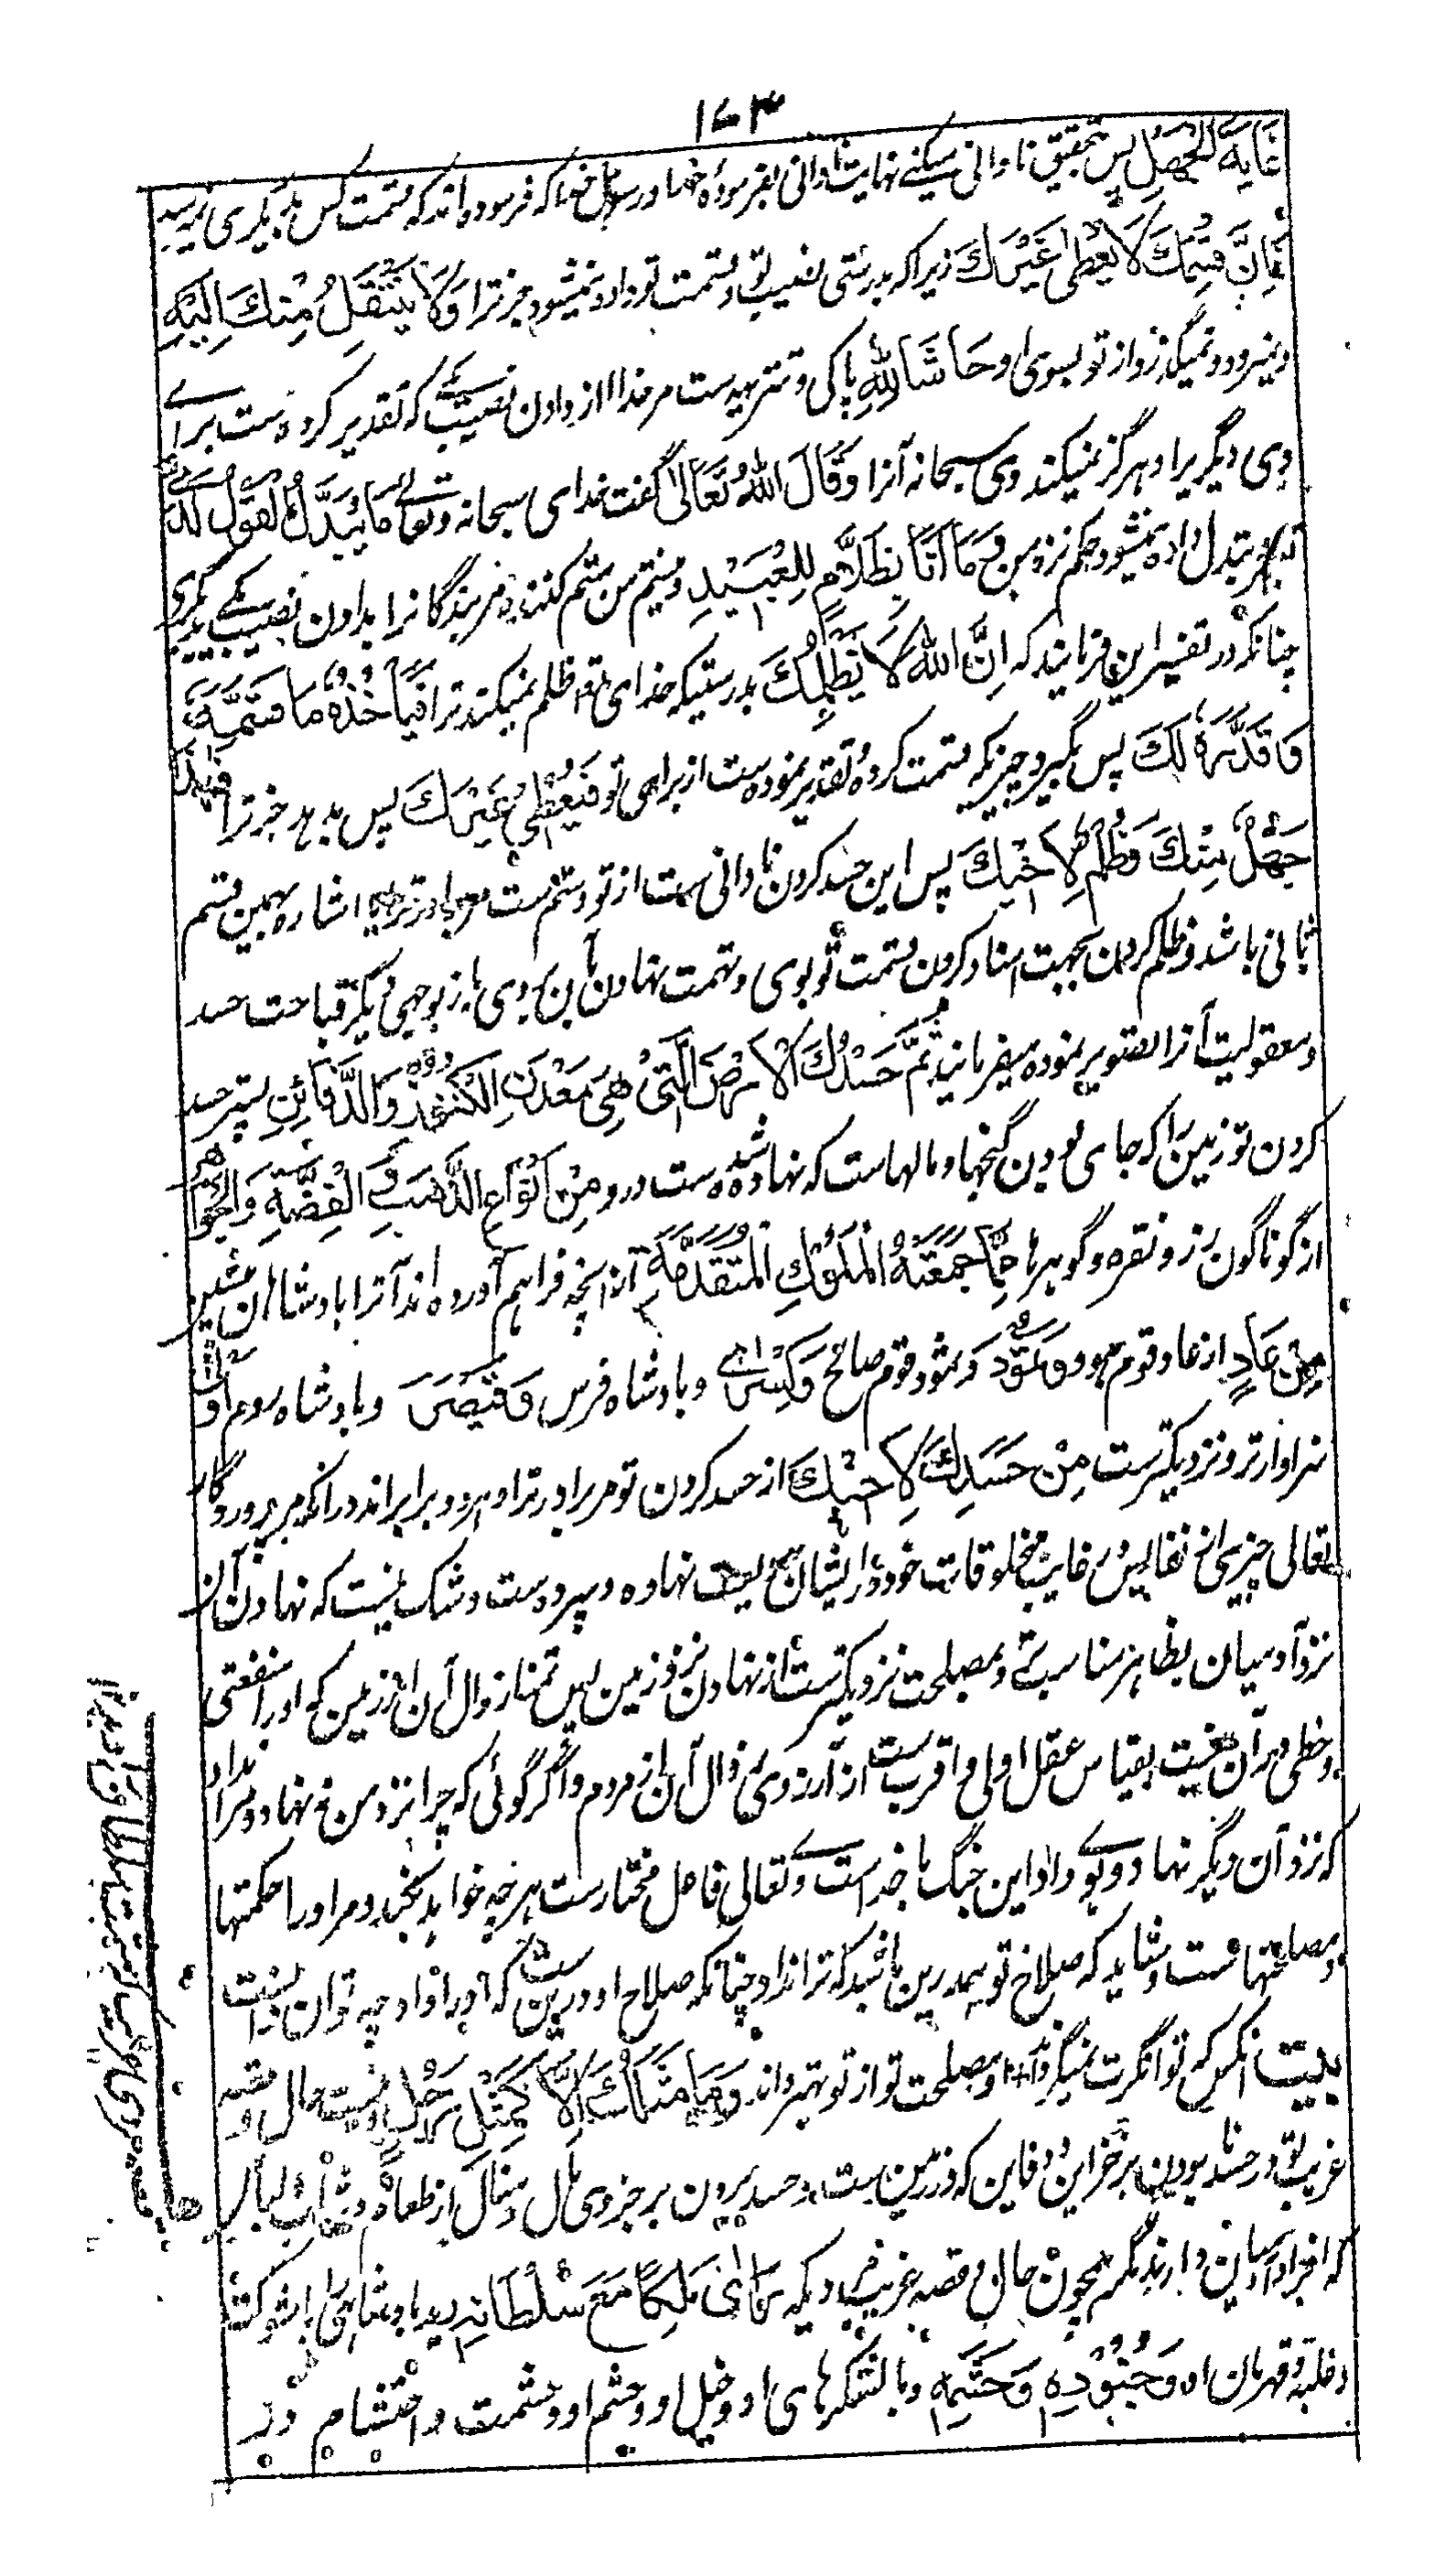 ۱۷۳
غَايَةَ الْجَهْلِ پس تحقیق نادانی میکنی نهایت نادانی بفرموده خدا و رسول خدا که فرموده اند که قسمت کس بدیگری نرسد
فَإِنَّ قِسْمَكَ لَا يُعْطَى غَيْرَكَ زیرا که بدرستی نصیب تو و قسمت تو داده نمیشود جز ترا وَلَا يَنْتَقِلُ مِنْكَ إِلَيْهِ
و نمیرود و نمیگذرد از تو بسوی او حَاشَا لِلّٰهِ پاکی و تنزیهست مر خدا را از دادن نصیبی که تقدیر کرده است برای
وی دیگریرا و هرگز نمیکند وی سبحانه آنرا وَقَالَ اللّٰهُ تَعَالَىٰ گفت خدای سبحانه و تعالی مَا يُبَدَّلُ الْقَوْلُ لَدَيَّ
تبدل داده نمیشود حکم نزد من وَمَا أَنَا بِظَلَّامٍ لِلْعَبِيدِ و نیستم من ستم کننده مر بندگانرا بدادن نصیب یکی بدیگری
چنانکه در تفسیر این فرمایند که إِنَّ اللّٰهَ لَا يَظْلِمُكَ بدرستیکه خدای تعالی ظلم نمیکند ترا فَيَأْخُذُ مَا قَسَمَهُ
وَقَدَّرَهُ لَكَ پس بگیرد چیزیکه قسمت کرده و تقدیر نموده ست از برای تو فَيُعْطِيَ غَيْرَكَ پس بدهد جز ترا فَهٰذَا
جَهْلٌ مِنْكَ وَظُلْمٌ لِأَخِيكَ پس این حسد کردن نادانی ست از تو و ستم ست مر برادر ترا اشاره بهمین قسم
ثانی باشد و ظلم کردن بجهت اسناد کردن قسمت تو بوی و تهمت نهادن بآن بر وی باز بوجهی دیگر قباحت حسد
و معقولیت آنرا تصویر نموده میفرمایند ثُمَّ حَسَدُكَ الْأَرْضَ الَّتِي هِيَ مَعْدِنُ الْكُنُوزِ وَالدَّفَائِنِ پستر حسد
کردن تو زمین را که جای بودن گنجها و مالهاست که نهاده شده ست درو مِنْ أَنْوَاعِ الذَّهَبِ وَالْفِضَّةِ وَالْجَوَاهِرِ
از گوناگون زر و نقره و گوهرها مِمَّا جَمَعَتْهُ الْمُلُوكُ الْمُتَقَدِّمَةُ از آنچه فراهم آورده اند آنرا بادشاهان پیشین
مِنْ عَادٍ از عاد قوم هود وَثَمُودَ و ثمود قوم صالح وَكِسْرَى و بادشاه فرس وَقَيْصَرَ و بادشاه روم أَوْلَى
سزاوارتر و نزدیکترست مِنْ حَسَدِكَ لِأَخِيكَ از حسد کردن تو مر برادر ترا و هر دو برابراند در آنکه پروردگار
تعالی چیزی از نفایس و رغایب مخلوقات خود در ایشان نهاده و سپرده ست و شک نیست که نهادن آن
نزد آدمیان بظاهر مناسبت و بمصلحت نزدیکترست از نهادن نزد زمین پس تمنا زوال آن از زمین که او را منفعتی
و حظی در آن نیست بقیاس عقل اولی و اقرب ست از آرزوی زوال آن از مردم و اگر گوئی که چرا نزد من نه نهاد و مرا نداد
که نزد آن دیگر نهاد و بوی داد این جنگ با خداست وی تعالی فاعل مختارست هر چه خواهد بکند و مر او را حکمتها
و مصلحتهاست و شاید که صلاح تو همدرین باشد که ترا نداد چنانکه صلاح او درین ست که او را داد چه توان دانست
بیت آنکس که توانگرت نمیگرداند + او مصلحت تو از تو بهتر داند وَمَا مَثَلُكَ إِلَّا كَمَثَلِ رَجُلٍ و نیست حال و قصه
غریب تو در حسد بودن بر خزاین و دفاین که در زمین ست و حسد بردن بر چیزی مال و منال از طعام و شراب و لباس
که افراد آدمیان دارند مگر همچون حال و قصه غریب مردیکه رَأَى مَلِكًا مَعَ سُلْطَانِهِ دید بادشاهی را با شوکت
و غلبه و قهرمان او وَجُنُودِهِ وَحَشَمِهِ و با لشکرهای او و خیل او و حشم او و حشمت و احتشام